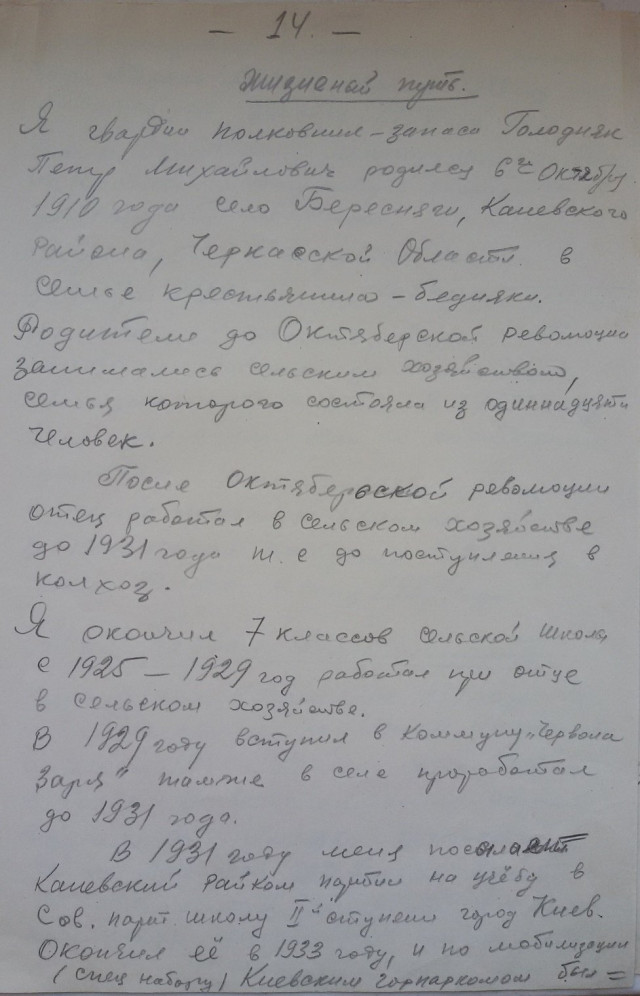 — 14. —
Жизненой путь.
Я гвардии полковник-запаса Голодняк
Петр Михайлович родился 6го Октября
1910 года село Бересняги, Каневского
района, Черкасской Области в
семье крестьянина-бедняки.
Родители до Октябрской революции
занимались сельским хозяйством,
семья которого состояла из одиннадцяти
человек.
После Октябероской революции
отец работал в сельском хозяйстве
до 1931 года т. е до поступления в
колхоз.
Я окончил 7 классов сельской школы
с 1925 — 1929 год работал при отце
в сельском хозяйстве.
В 1929 году вступил в коммуну „Червона
Заря" тамже в селе проработал
до 1931 года.
В 1931 году меня посылает
Каневский райком партии на учёбу в
Сов. парт школу II й ступени город Киев.
Окончил её в 1933 году, и по мобилизации
(спец набору) Киевским горпаркомом был =